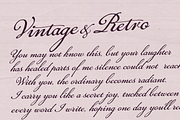 Vintage & Retro
You may not know this, but your laughter
has healed parts of me silence could not reach
With you, the ordinary becomes radiant.
I carry you like a secret joy, tucked between
every word I write, hoping one day you'll re